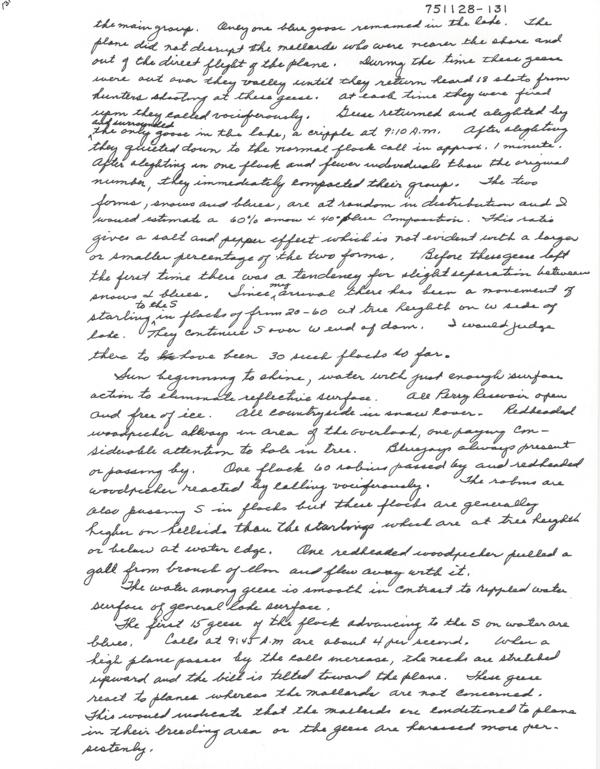 751128-131
the main group. Only one blue goose remained in the lake. The
plane did not disrupt the mallards who were nearer the shore and
out of the direct flight of the plane. During the time these geese
were out over they valley until they return heard 18 shots from
hunters shooting at these geese. At each time they were fired
upon they called vociferously. Geese returned and alighted by
and surrounded
the only goose in the lake, a cripple at 9:10 A.M. After alighting
they quieted down to the normal flock call in approx. 1 minute.
After alighting in one flock and fewer individuals than the original
number, they immediately compacted their group. The two
forms, snows and blues, are at random in distribution and I
would estimate a 60% snow & 40% blue composition. This ratio
gives a salt and pepper effect which is not evident with a larger
or smaller percentage of the two forms. Before these geese left
the first time there was a tendency for slight separation between
snows & blues. Since my arrival there has been a movement of
to the S
starling in flocks of from 20-60 at tree heighth on W side of
lake. They continue S over W end of dam. I would judge
there to have been 30 such flocks so far.
Sun beginning to shine, water with just enough surface
action to eliminate reflective surface. All Perry Resevoir open
and free of ice. All countryside in snow cover. Redheaded
woodpecker always in area of the overlook, one paying con-
siderable attention to hole in tree. Bluejays always present
or passing by. One flock 60 robins passed by and redheaded
woodpecker reacted by calling vociferously. The robins are
also passing S in flocks but these flocks are generally
higher on hillside than the starlings which are at tree heighth
or below at water edge. One redheaded woodpecker pulled a
gall from branch of elm and flew away with it.
The water among geese is smooth in contrast to rippled water
surface of general lake surface.
The first 15 geese of the flock advancing to the S on water are
blues. Calls at 9:45 A.M are about 4 per second. When a
high plane passes by the calls increase, the necks are stretched
upward and the bill is tilted toward the plane. These geese
react to planes whereas the mallards are not concerned.
This would indicate that the mallards are conditioned to plane
in their breeding area or the geese are harassed more per-
sistenly.